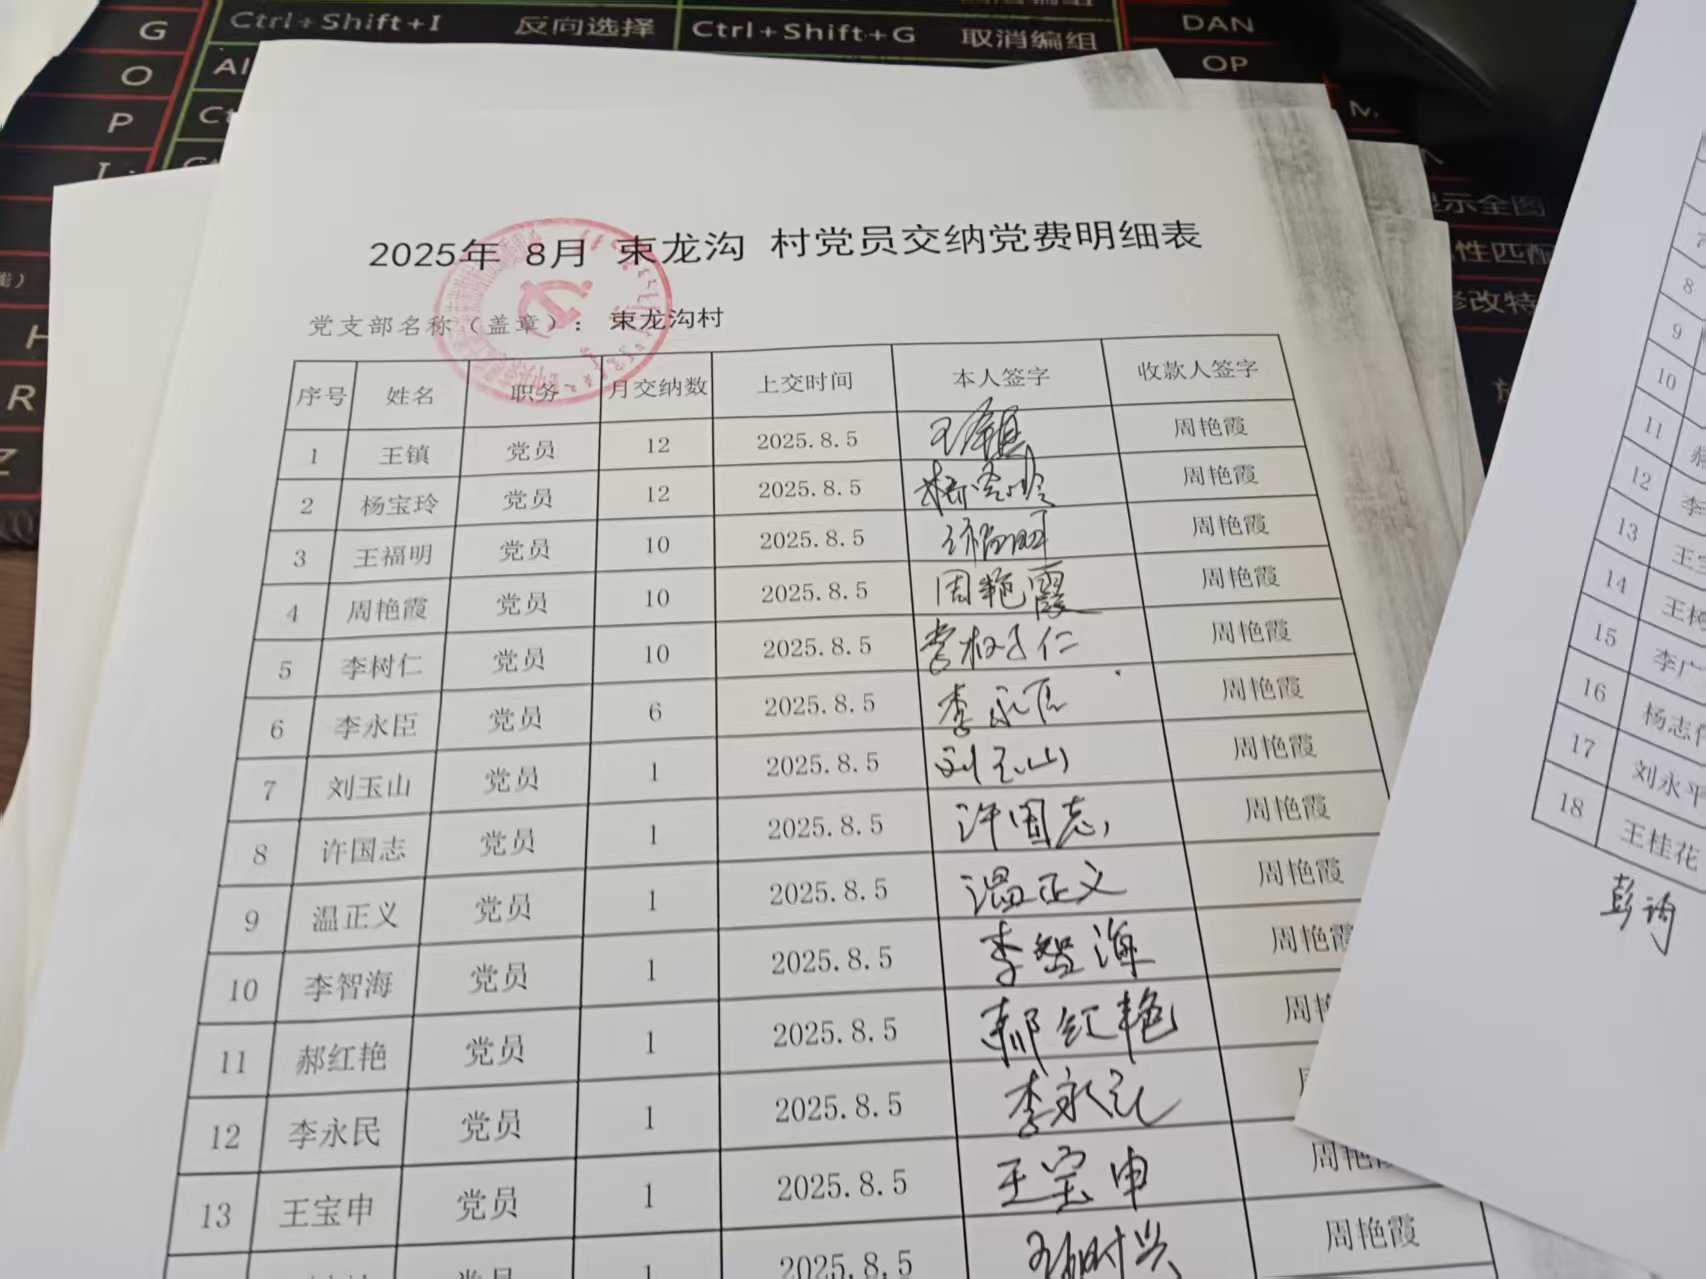 G Ctrl+Shift+I 反向选择 Ctrl+Shift+G 取消编组 DAN
O OP
P
2025年 8月 束龙沟 村党员交纳党费明细表
党支部名称（盖章）： 束龙沟村
序号 姓名 职务 月交纳数 上交时间 本人签字 收款人签字
1 王镇 党员 12 2025.8.5 王镇 周艳霞
2 杨宝玲 党员 12 2025.8.5 杨宝玲 周艳霞
3 王福明 党员 10 2025.8.5 王福明 周艳霞
4 周艳霞 党员 10 2025.8.5 周艳霞 周艳霞
5 李树仁 党员 10 2025.8.5 李树仁 周艳霞
6 李永臣 党员 6 2025.8.5 李永臣 周艳霞
7 刘玉山 党员 1 2025.8.5 刘玉山 周艳霞
8 许国志 党员 1 2025.8.5 许国志 周艳霞
9 温正义 党员 1 2025.8.5 温正义 周艳霞
10 李智海 党员 1 2025.8.5 李智海 周艳霞
11 郝红艳 党员 1 2025.8.5 郝红艳 周
12 李永民 党员 1 2025.8.5 李永民
13 王宝申 党员 1 2025.8.5 王宝申 周艳
党员 1 2025.8.5 周艳霞
示全图
性匹配
修改特
H
R
Z
8
9
10
11
12 李
13 王
14 王
15 李广
16 杨志
17 刘永平
18 王桂花
彭询